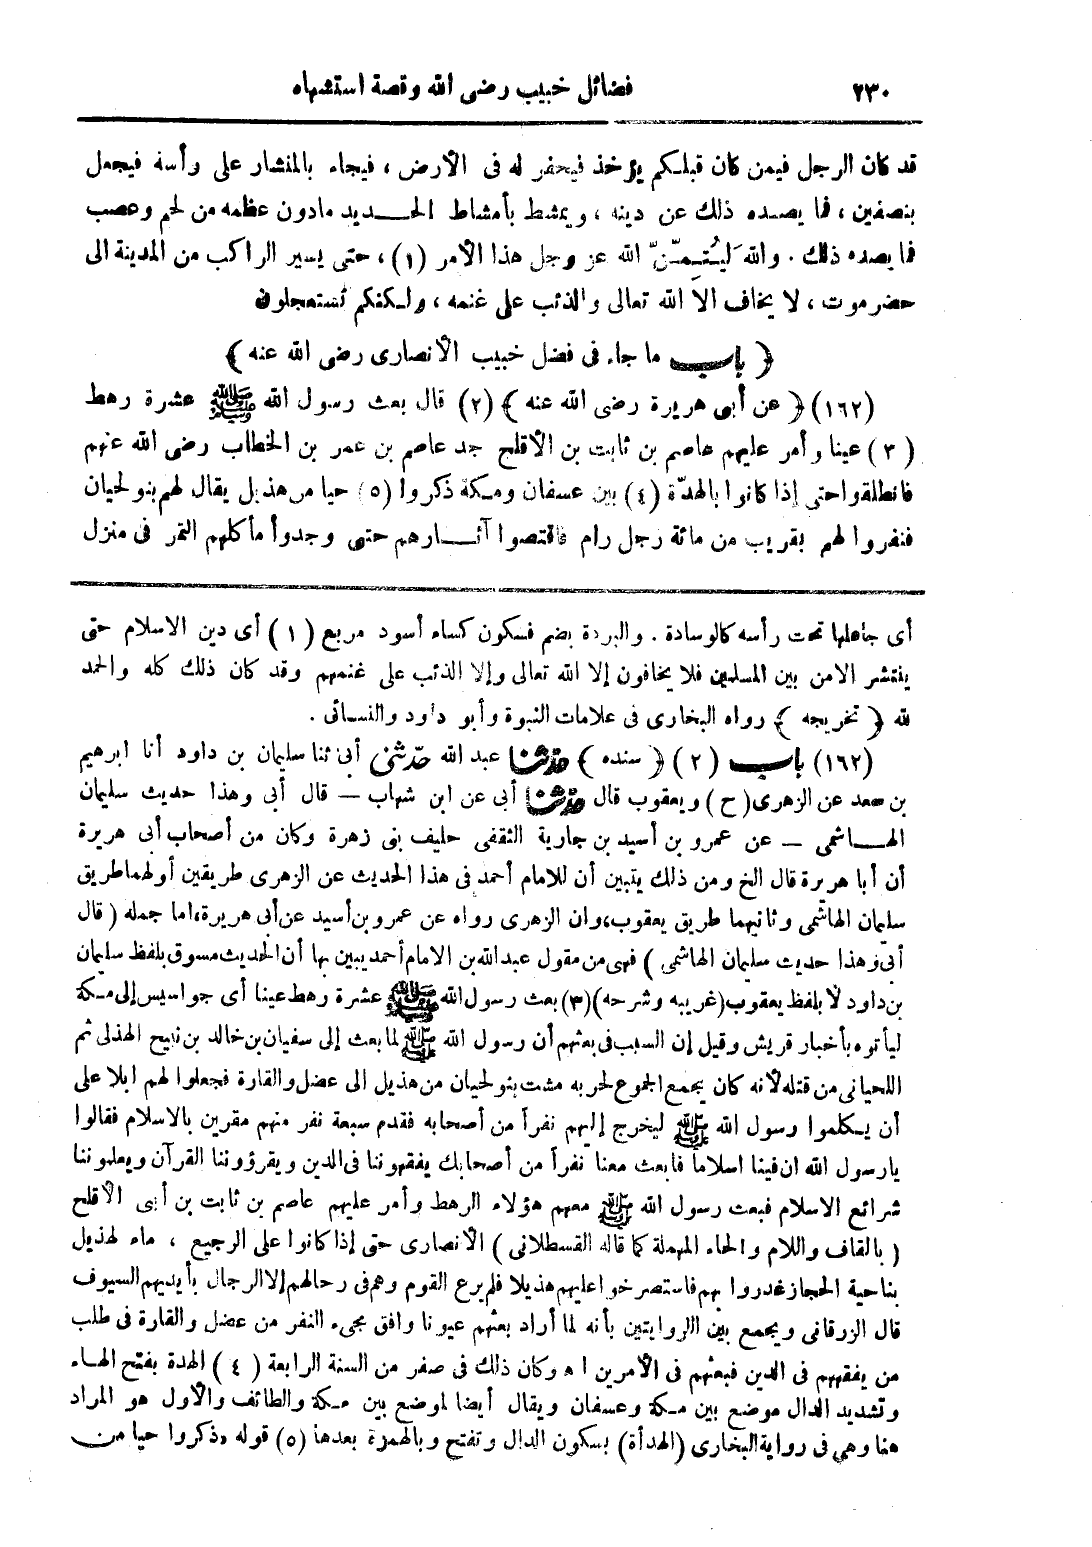 ٢٣٠ فضائل خبيب رضى الله وقصة استشهاه
قد كان الرجل فيمن كان قبلكم يؤخذ فيحفر له فى الأرض ، فيجاء بالمنشار على رأسه فيجعل
بنصفين ، فما يصده ذلك عن دينه ، ويمشط بأمشاط الحديد مادون عظمه من لحم وعصب
فما يصده ذلك . والله لَيُتِمّنّ الله عز وجل هذا الأمر (١) ، حتى يسير الراكب من المدينة الى
حضرموت ، لا يخاف الا الله تعالى والذئب على غنمه ، ولكنكم تستعجلون
﴿ باب ما جاء فى فضل خبيب الأنصارى رضى الله عنه ﴾
(١٦٢) ﴿ عن أبى هريرة رضى الله عنه ﴾ (٢) قال بعث رسول الله ﷺ عشرة رهط
(٣) عينا وأمر عليهم عاصم بن ثابت بن الأقلح جد عاصم بن عمر بن الخطاب رضى الله عنهم
فانطلقوا حتى إذا كانوا بالهدّة (٤) بين عسفان ومكة ذكروا (٥) حيا من هذيل يقال لهم بنو لحيان
فنفروا لهم بقريب من مائة رجل رام فاقتصوا آثارهم حتى وجدوا مأكلهم التمر فى منزل
أى جاعلها تحت رأسه كالوسادة . والبردة بضم فسكون كساء أسود مربع (١) أى دين الاسلام حتى
ينتشر الامن بين المسلمين فلا يخافون إلا الله تعالى وإلا الذئب على غنمهم وقد كان ذلك كله والحمد
لله ﴿ تخريجه ﴾ رواه البخارى فى علامات النبوة وأبو داود والنسائى .
(١٦٢) باب (٢) ﴿ سنده ﴾ حدثنا عبد الله حدّثنى أبى ثنا سليمان بن داود أنا ابرهيم
بن سعد عن الزهرى (ح) ويعقوب قال حدثنا أبى عن ابن شهاب – قال أبى وهذا حديث سليمان
الهاشمى – عن عمرو بن أسيد بن جارية الثقفى حليف بنى زهرة وكان من أصحاب أبى هريرة
أن أبا هريرة قال الخ ومن ذلك يتبين أن للامام أحمد فى هذا الحديث عن الزهرى طريقين أولهما طريق
سليمان الهاشمى وثانيهما طريق يعقوب، وان الزهرى رواه عن عمرو بن أسيد عن أبى هريرة، اما جمله (قال
أبى وهذا حديث سليمان الهاشمى) فهى من مقول عبدالله بن الامام أحمد يبين بها أن الحديث مسوق بلفظ سليمان
بن داود لا بلفظ يعقوب (غريبه وشرحه) (٣) بعث رسول الله ﷺ عشرة رهط عينا أى جواسيس إلى مكة
ليأتوه بأخبار قريش وقيل إن السبب فى بعثهم أن رسول الله ﷺ لما بعث إلى سفيان بن خالد بن نبيح الهذلى ثم
اللحيانى من قتله لأنه كان يجمع الجموع لحربه مشت بنو لحيان من هذيل الى عضل والقارة فجعلوا لهم ابلا على
أن يكلموا رسول الله ﷺ ليخرج إليهم نفرأ من أصحابه فقدم سبعة نفر منهم مقرين بالاسلام فقالوا
يارسول الله ان فينا اسلاما فابعث معنا نفرأ من أصحابك يفقهوننا فى الدين ويقرؤوننا القرآن ويعلموننا
شرائع الاسلام فبعث رسول الله ﷺ معهم هؤلاء الرهط وأمر عليهم عاصم بن ثابت بن أبى الأقلح
(بالقاف واللام والحاء المهملة كما قاله القسطلانى) الأنصارى حتى إذا كانوا على الرجيع ، ماء لهذيل
بناحية الحجاز غدروا بهم فاستصرخوا عليهم هذيلا فلم يرع القوم وهم فى رحالهم إلا الرجال بأيديهم السيوف
قال الزرقانى ويجمع بين الروايتين بأنه لما أراد بعثهم عيونا وافق مجىء النفر من عضل والقارة فى طلب
من يفقههم فى الدين فبعثهم فى الأمرين اه وكان ذلك فى صفر من السنة الرابعة (٤) الهدة بفتح الهاء
وتشديد الدال موضع بين مكة وعسفان ويقال أيضا لموضع بين مكة والطائف والأول هو المراد
هنا وهى فى رواية البخارى (الهدأة) بسكون الدال وتفتح وبالهمزة بعدها (٥) قوله ذكروا حيا من